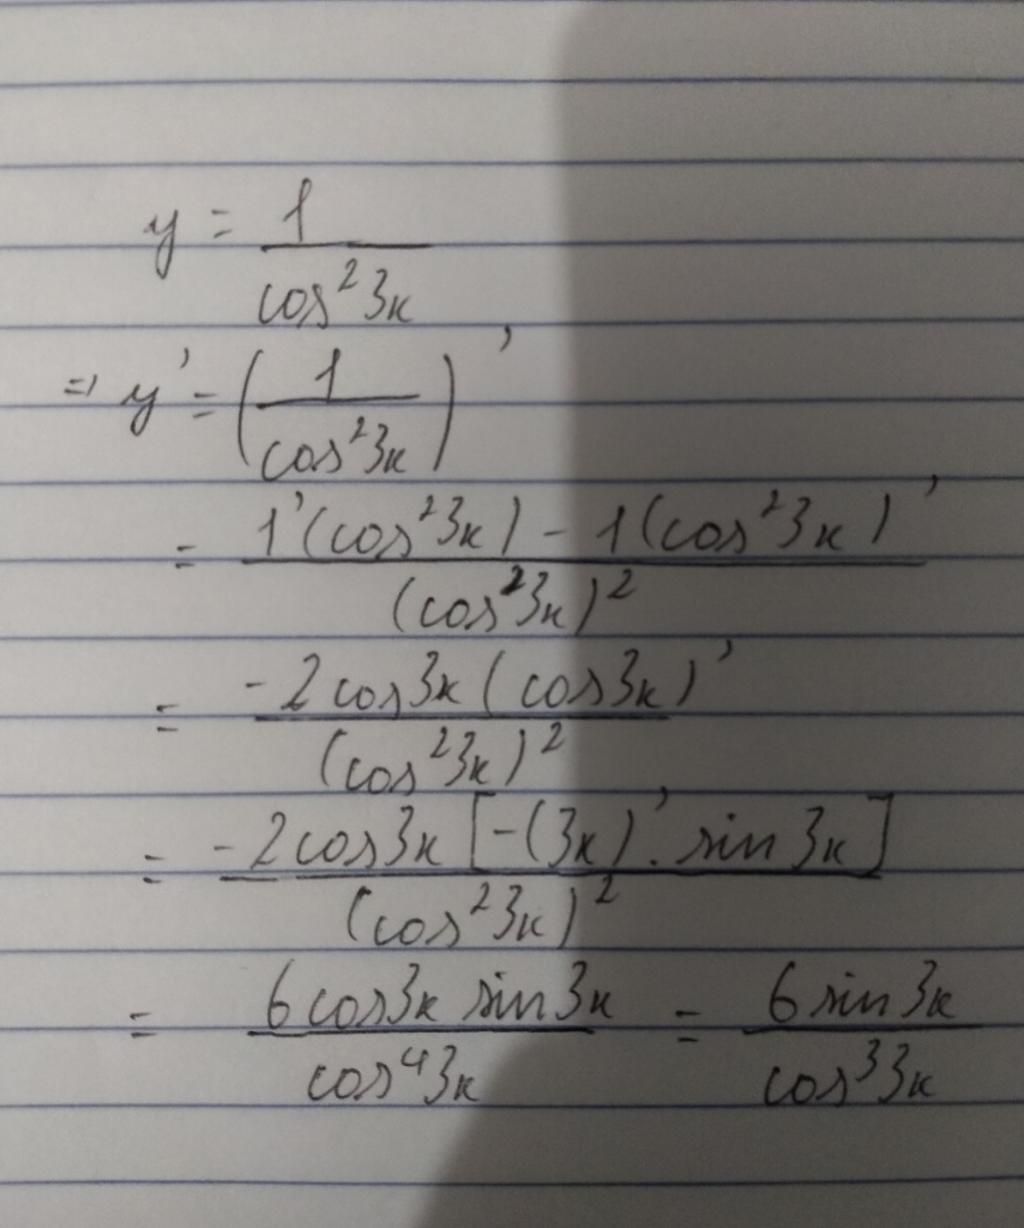 y = 1/cos²3x
=> y' = (1/cos²3x)'
= (1'(cos²3x) - 1(cos²3x)')/(cos²3x)²
= (-2cos3x(cos3x)')/(cos²3x)²
= (-2cos3x[-(3x)'. sin3x])/(cos²3x)²
= (6cos3x sin3x)/(cos⁴3x) = (6sin3x)/(cos³3x)